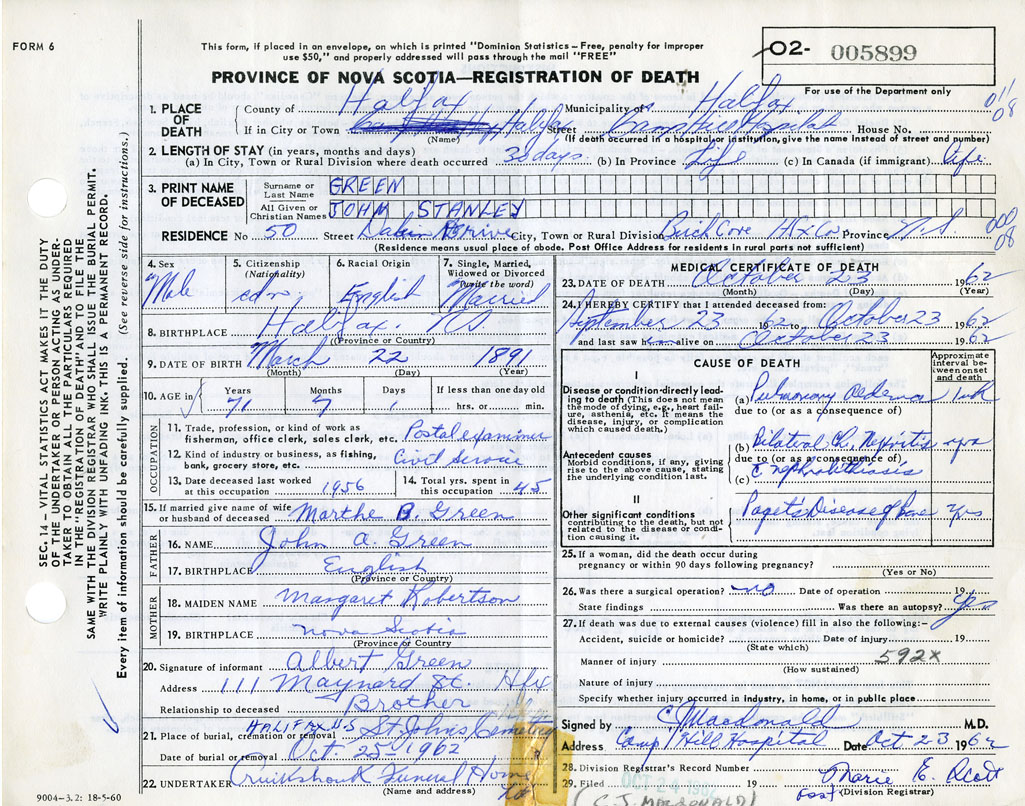 FORM 6
This form, if placed in an envelope, on which is printed "Dominion Statistics – Free, penalty for improper
use $50," and properly addressed will pass through the mail "FREE"
PROVINCE OF NOVA SCOTIA—REGISTRATION OF DEATH
02- 005899
For use of the Department only
011
08
1. PLACE OF DEATH County of Halifax Municipality of Halifax
If in City or Town Halifax Street Camp Hill Hospital House No.
(Name) (If death occurred in a hospital or institution, give the name instead of street and number)
2. LENGTH OF STAY (in years, months and days)
(a) In City, Town or Rural Division where death occurred 30 days. (b) In Province Life (c) In Canada (if immigrant) Life.
3. PRINT NAME OF DECEASED Surname or Last Name GREEN
All Given or Christian Names JOHN STANLEY
RESIDENCE No 50 Street Drive City, Town or Rural Division Birch Cove Hfx Co Province N.S.
000
08
(Residence means usual place of abode. Post Office Address for residents in rural parts not sufficient)
4. Sex Male
5. Citizenship (Nationality) cdn,
6. Racial Origin English
7. Single, Married, Widowed or Divorced (write the word) Married
8. BIRTHPLACE Halifax. N.S.
(Province or Country)
9. DATE OF BIRTH March 22 1891
(Month) (Day) (Year)
10. AGE in Years 71 Months 7 Days 1 If less than one day old
hrs. or min.
OCCUPATION
11. Trade, profession, or kind of work as
fisherman, office clerk, sales clerk, etc. Postal examiner
12. Kind of industry or business, as fishing,
bank, grocery store, etc. Civil Service
13. Date deceased last worked
at this occupation 1956
14. Total yrs. spent in
this occupation 45
15. If married give name of wife
or husband of deceased Marthe B. Green
FATHER
16. NAME John A. Green
17. BIRTHPLACE English
(Province or Country)
MOTHER
18. MAIDEN NAME Margaret Robertson
19. BIRTHPLACE Nova Scotia
(Province or Country)
20. Signature of informant Albert Green
Address 111 Maynard St. Hfx
Relationship to deceased Brother
HALIFAX N.S
21. Place of burial, cremation or removal St. Johns Cemetery
Date of burial or removal Oct. 25, 1962
22. UNDERTAKER Cruikshank Funeral Home
(Name and address)
9004-3.2: 18-5-60
MEDICAL CERTIFICATE OF DEATH
23. DATE OF DEATH October 23 1962
(Month) (Day) (Year)
24. I HEREBY CERTIFY that I attended deceased from:
September 23 1962 to October 23 1962
and last saw him alive on October 23 1962
CAUSE OF DEATH
Approximate interval between onset and death
I
Disease or condition directly leading to death (This does not mean the mode of dying, e.g., heart failure, asthenia, etc. It means the disease, injury, or complication which caused death.)
(a) Pulmonary Oedema 1 wk
due to (or as a consequence of)
Antecedent causes
Morbid conditions, if any, giving rise to the above cause, stating the underlying condition last.
(b) Bilateral Ch. Nephritis yrs
due to (or as a consequence of)
(c) c nephrolithiasis
II
Other significant conditions
contributing to the death, but not related to the disease or condition causing it.
Paget's Disease of bone yrs
25. If a woman, did the death occur during
pregnancy or within 90 days following pregnancy?
(Yes or No)
26. Was there a surgical operation? no Date of operation 19
State findings Was there an autopsy? yes
27. If death was due to external causes (violence) fill in also the following:-
Accident, suicide or homicide? Date of injury 19
(State which)
592X
Manner of injury
(How sustained)
Nature of injury
Specify whether injury occurred in industry, in home, or in public place
Signed by C J Macdonald M.D.
Address Camp Hill Hospital Date Oct 23 1962
28. Division Registrar's Record Number
29. Filed OCT 24 1962 Marie E. Scott
(Division Registrar)
(C. J. MACDONALD)
SEC. 14 – VITAL STATISTICS ACT MAKES IT THE DUTY
OF THE UNDERTAKER OR PERSON ACTING AS UNDER-
TAKER TO OBTAIN ALL THE PARTICULARS REQUIRED
IN THE "REGISTRATION OF DEATH" AND TO FILE THE
SAME WITH THE DIVISION REGISTRAR WHO SHALL ISSUE THE BURIAL PERMIT.
WRITE PLAINLY WITH UNFADING INK. THIS IS A PERMANENT RECORD.
Every item of information should be carefully supplied. (See reverse side for instructions.)